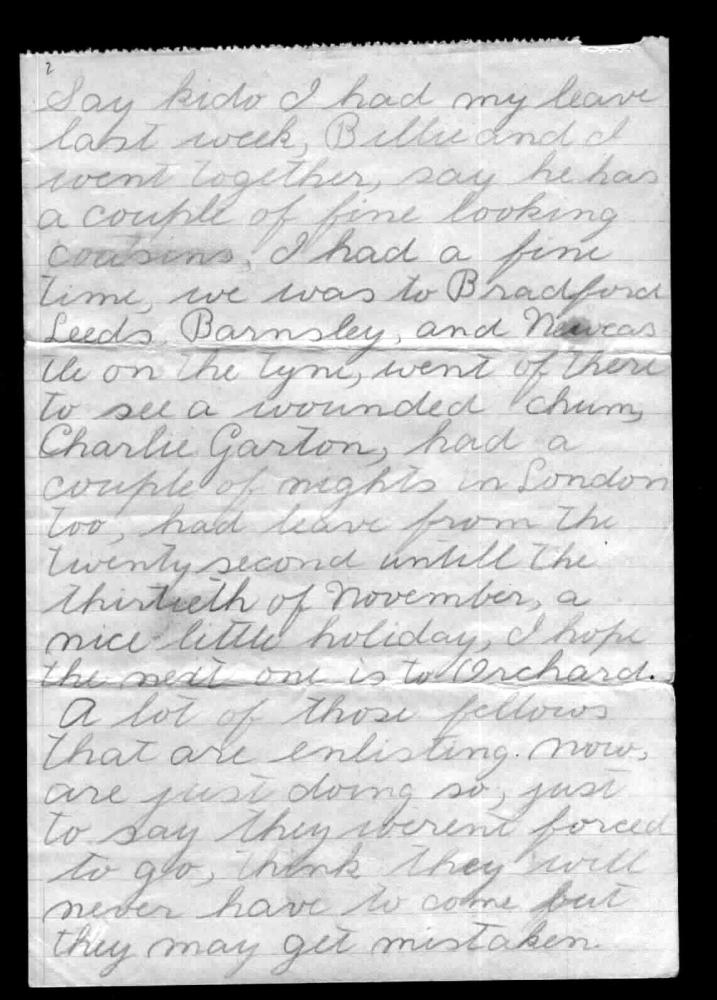 2
Say kido I had my leave
last week, Billie and I
went together, say he has
a couple of fine looking
cousins, I had a fine
time, we was to Bradford
Leeds, Barnsley, and Newcas
tle on the tyne, went of there
to see a wounded chum,
Charlie Garton, had a
couple of nights in London
too, had leave from the
twenty second untill the
thirtieth of November, a
nice little holiday, I hope
the next one is to Orchard.
A lot of those fellows
that are enlisting now,
are just doing so, just
to say they werent forced
to go, think they will
never have to come but
they may get mistaken.